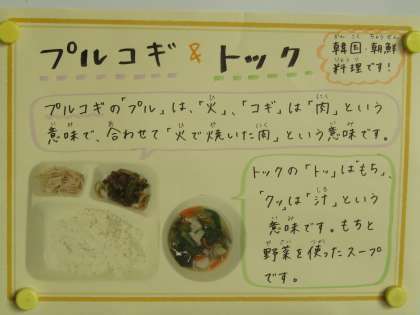 プルコギ & トック
韓国・朝鮮
料理です!
プルコギの「プル」は、「火」、「コギ」は「肉」という
意味で、合わせて「火で焼いた肉」という意味です。
トックの「トッ」は「もち」、
「クッ」は「汁」という
意味です。もちと
野菜を使ったスープ
です。